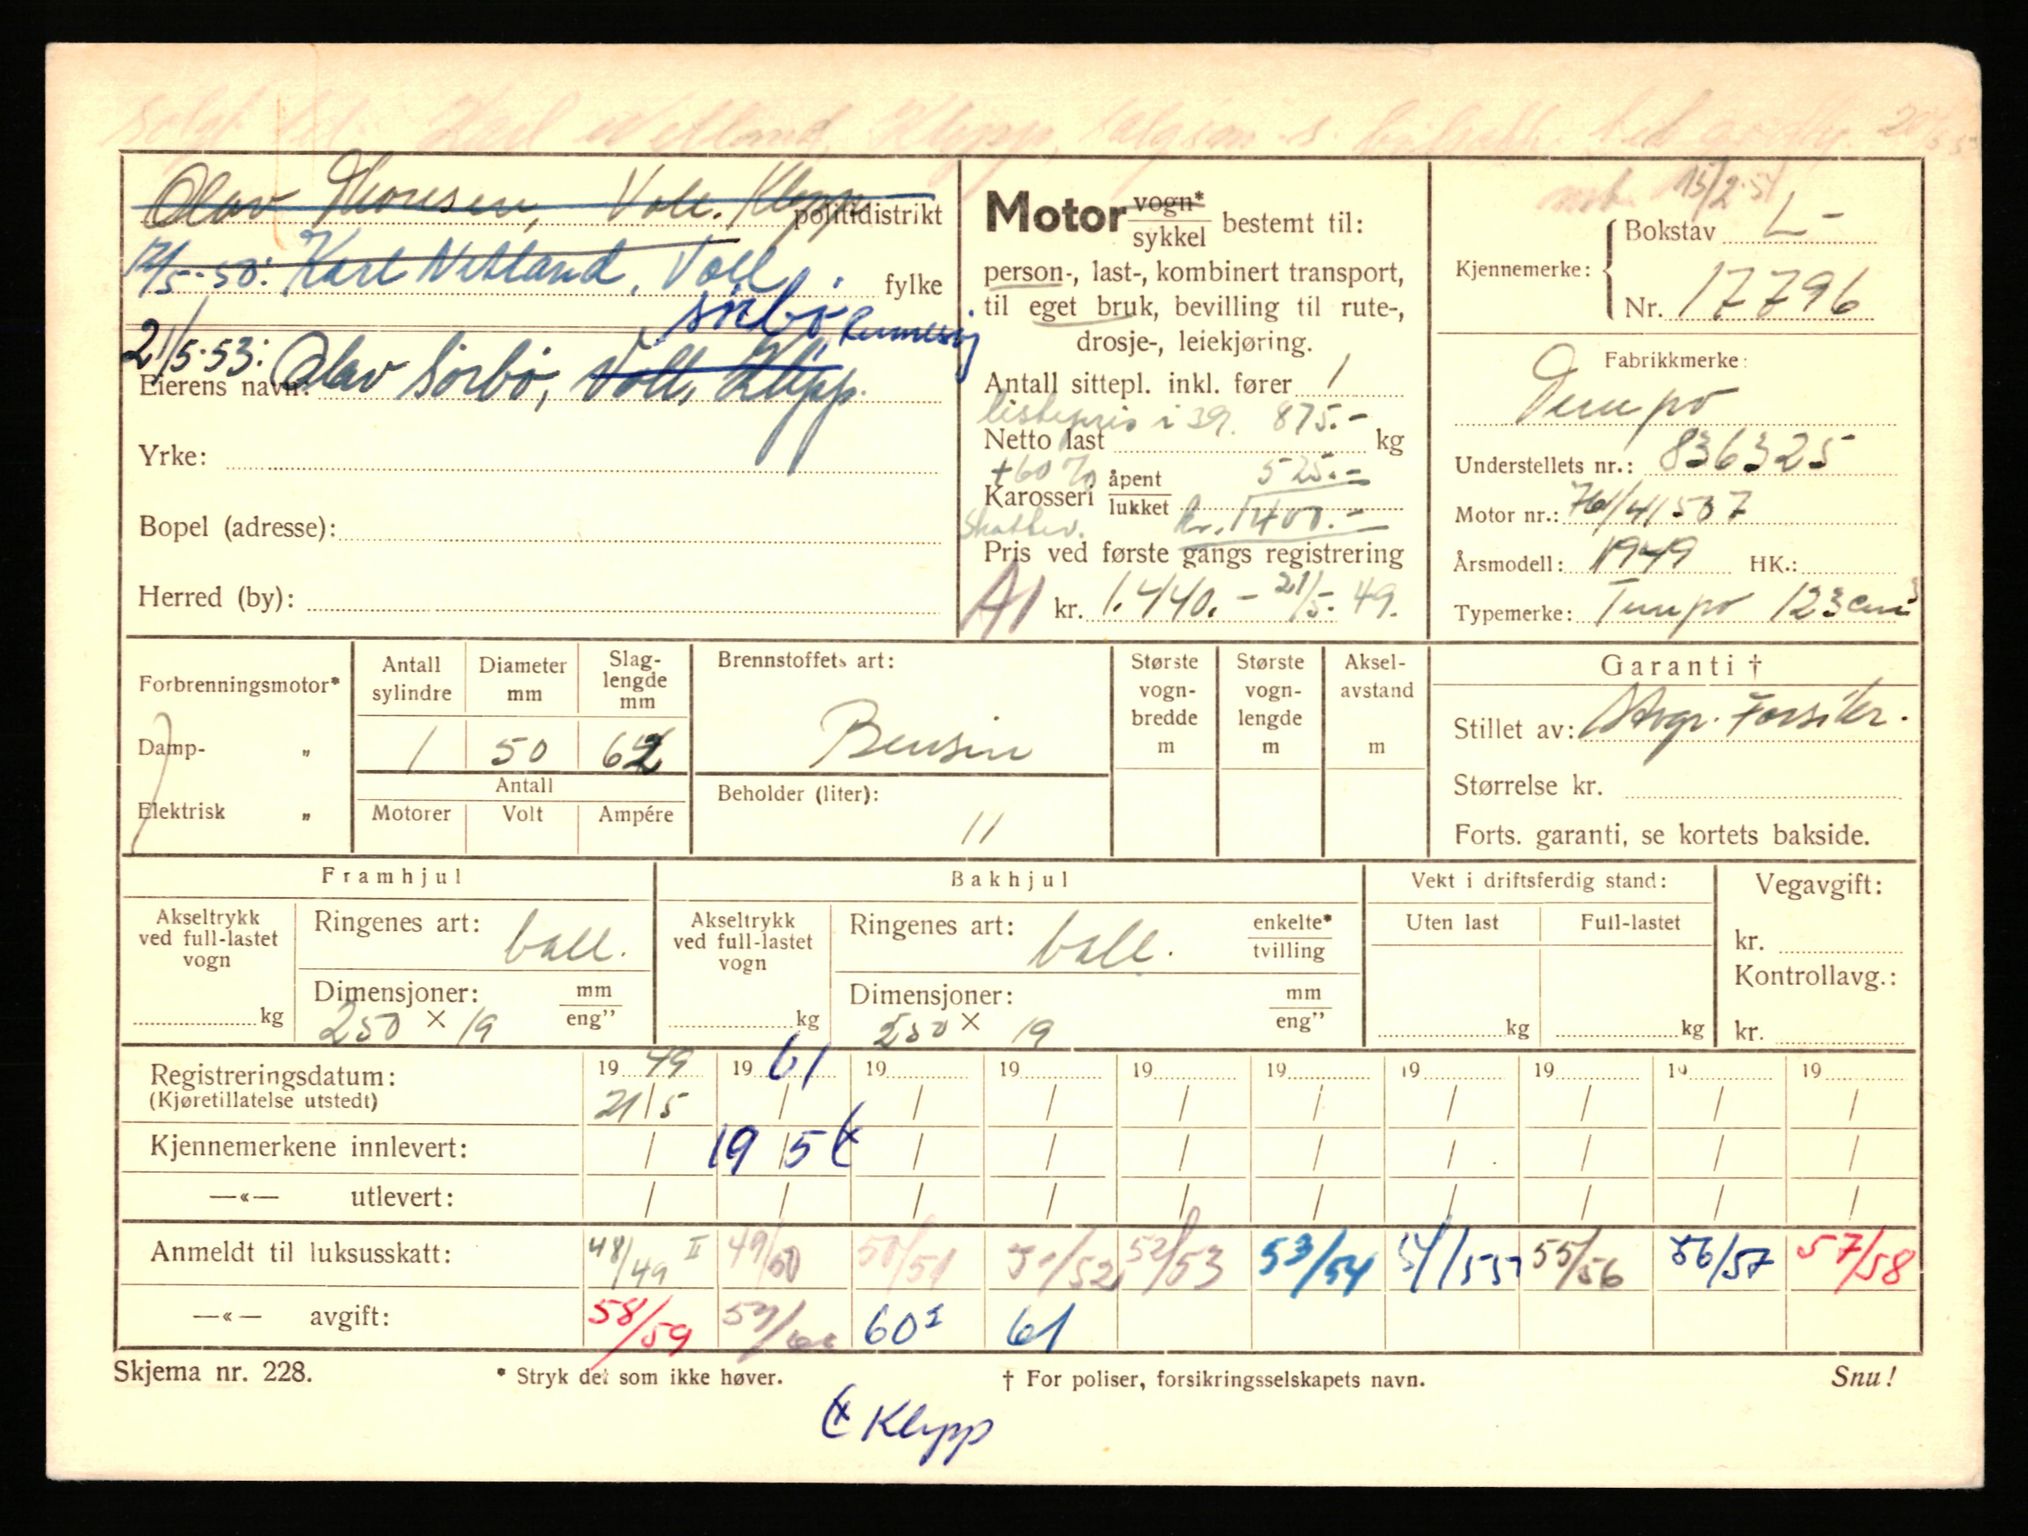 Karl Netland, Klepp,
Olav Thorsen, Voll. Klepp politidistrikt
12/5-50: Karl Netland, Voll. fylke
Sörbö, Rennesøy
21/5-53: Olav Sörbö, Voll, Klepp.
Eierens navn:
Yrke:
Bopel (adresse):
Herred (by):
Motor vogn* sykkel bestemt til:
person-, last-, kombinert transport,
til eget bruk, bevilling til rute-,
drosje-, leiekjøring.
Antall sittepl. inkl. fører 1
listepris i 39. 875.-
Netto last kg
+60% 525.-
Karosseri åpent lukket
kr. 1400.-
Pris ved første gangs registrering
A1 kr. 1.440.- 21/5-49.
15/2-51
Kjennemerke: Bokstav L-
Nr. 17796
Fabrikkmerke:
Tempo
Understellets nr.: 836325
Motor nr.: 741/41507
Årsmodell: 1949 HK.:
Typemerke: Tempo 123 cm³
Forbrenningsmotor*
Damp- „
Elektrisk „
Antall sylindre Diameter mm Slaglengde mm
1 50 62
Antall
Motorer Volt Ampére
Brennstoffets art:
Bensin
Beholder (liter):
11
Største vognbredde m
Største vognlengde m
Akselavstand m
Garanti †
Stillet av: Stvgr. Forsikr.
Størrelse kr.
Forts. garanti, se kortets bakside.
Framhjul
Akseltrykk ved full-lastet vogn kg
Ringenes art: ball.
Dimensjoner: mm eng”
250 × 19
Bakhjul
Akseltrykk ved full-lastet vogn kg
Ringenes art: ball. enkelte* tvilling
Dimensjoner: mm eng”
250 × 19
Vekt i driftsferdig stand:
Uten last Full-lastet
kg kg
Vegavgift:
kr.
Kontrollavg.:
kr.
Registreringsdatum: 19 49 19 61 19 19 19 19 19 19 19 19
(Kjøretillatelse utstedt) 21/5 / / / / / / / / /
Kjennemerkene innlevert: / 19/5 / / / / / / / /
—«— utlevert: / / / / / / / / / /
Anmeldt til luksusskatt: 48/49 II 49/50 50/51 51/52 52/53 53/54 54/55 55/56 56/57 57/58
—«— avgift: 58/59 59/60 60² 61
Skjema nr. 228. * Stryk det som ikke høver. † For poliser, forsikringsselskapets navn. Snu!
Klepp